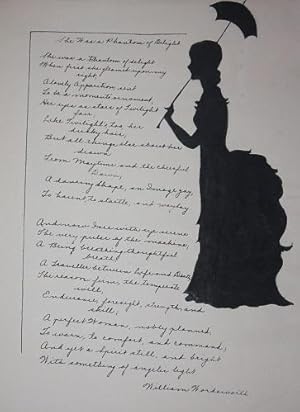 She Was a Phantom of Delight
She was a Phantom of delight
When first she gleamed upon my
sight,
A lovely Apparition sent
To be a moment's ornament
Her eyes as stars of Twilight
fair
Like Twilight's, too, her
dusky hair,
But all things else about her
drawn
From Maytime and the cheerful
Dawn,
A dancing Shape, an Image gay,
To haunt, to startle, and waylay
And now I see with eye serene
The very pulse of the machine,
A Being breathing thoughtful
breath
A Traveller between Life and Death,
The reason firm, the temperate
will,
Endurance, foresight, strength, and
skill,
A perfect Woman, nobly planned,
To warn, to comfort, and command,
And yet a Spirit still, and bright
With something of angelic light
William Wordsworth